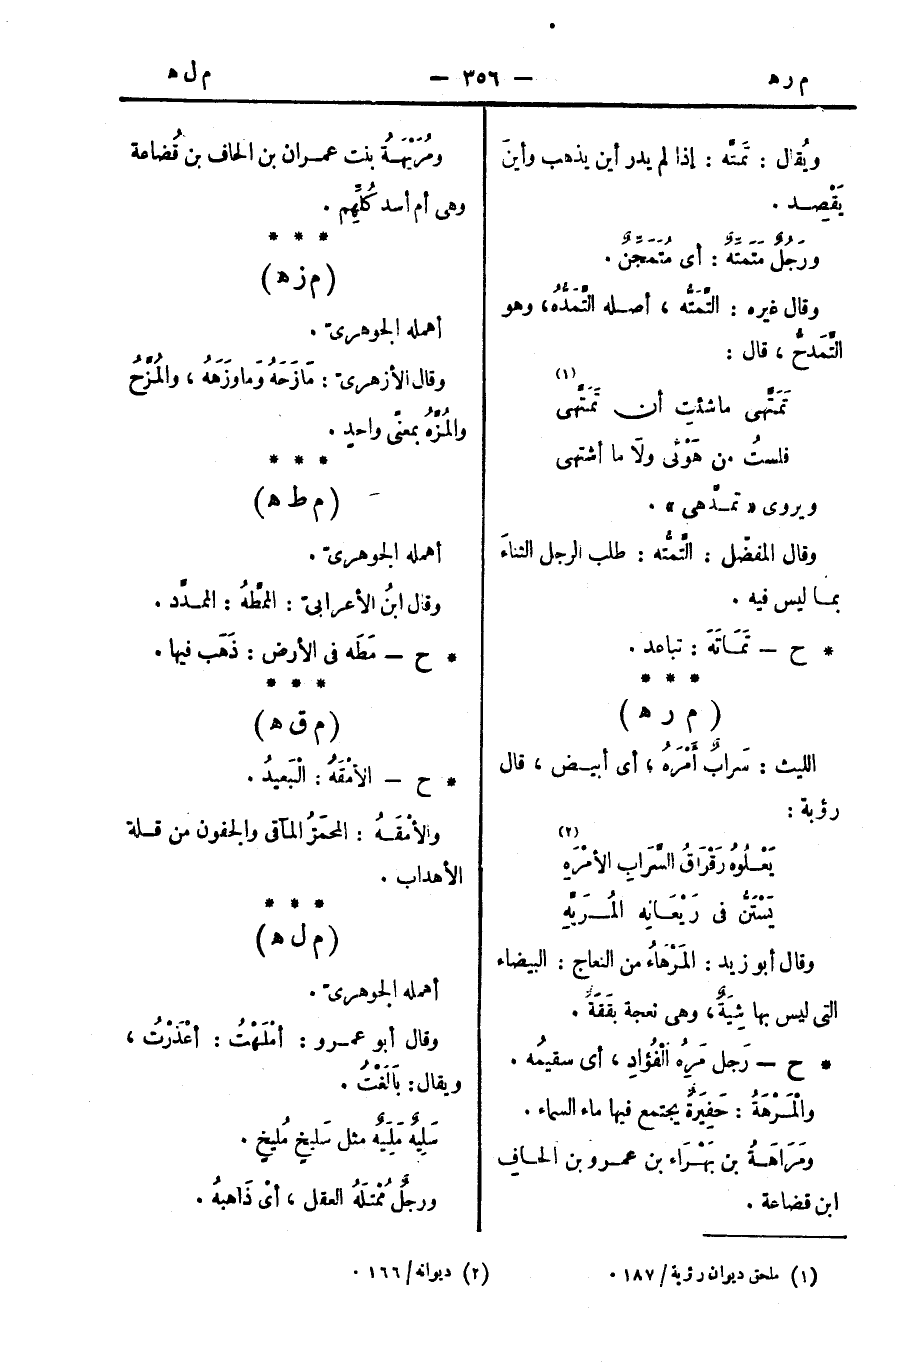 م ر ه — ٣٥٦ — م ل ه
ويُقال : تَمَتَّه : إذا لم يدر أين يذهب وأينَ
يَقْصِد .
ورَجُلٌ مُتَمَتِّهٌ : أى مُتَمَجِّنٌ .
وقال غيره : التَّمَتُّه ، أصله التَّمَدُّه، وهو
التَّمَدحُّ ، قال :
تَمَتَّهى ماشئتِ أن تَمَتَّهى (١)
فلستُ من هَوْئى ولَا ما أشتهى
ويروى « تمدَّهى » .
وقال المفضّل : التَّمتُّه : طلب الرجل الثناءَ
بما ليس فيه .
* ح — تَمَاتَهَ : تباعد .
* * *
( م ر ه )
الليث : سَرابٌ أَمْرَهُ ؛ أى أبيض ، قال
رؤبة :
يَعْلُوهُ رَقْرَاقُ السَّرابِ الأَمْرَهِ (٢)
يَسْتَنُّ فى رَيْعَانِه المُرَيَّهِ
وقال أبو زيد : المَرْهَاءُ من النعاج : البيضاء
التى ليس بها شِيَةٌ ، وهى نعجة يَقَقَةٌ .
* ح — رَجل مَرِهُ الْفُؤادِ ، أى سقيمُه .
والْمَرْهَةُ : حَفِيَرةٌ يجتمع فيها ماء السماء .
ومَرَاهَةُ بن بَهْرَاء بن عمرو بن الحافِ
ابن قضاعة .
ومُرَيْهَةُ بنت عمران بن الحاف بن قُضاعة
وهى أم أسد كُلِّهم .
* * *
( م ز ه )
أهمله الجوهرىّ .
وقال الأزهرىّ : مَازَحَهُ وَمازَهَهُ ، والمُزَّحُ
والمُزَّهُ بمعنًى واحدٍ .
* * *
( م ط ه )
أهمله الجوهرىّ .
وقال ابنُ الأعرابىّ : المُمَطَّهُ : الممدَّد .
* ح — مَطَه فى الأرض : ذَهَب فيها .
* * *
( م ق ه )
* ح — الأمْقَهُ : الْبَعيدُ .
والأَمْقَهُ : المحمَرُّ المآقى والجفون من قلة
الأهداب .
* * *
( م ل ه )
أهمله الجوهرىّ .
وقال أبو عمرو : أمْلَهْتُ : أعْذَرْتُ ،
ويقال : بَالَغْتُ .
سَلِيهٌ مَلِيهٌ مثل سَليخٍ مَليخٍ .
ورجلٌ مُمْتلَهُ العقل ، أىْ ذَاهبهُ .
(١) ملحق ديوان رؤبة / ١٨٧ .
(٢) ديوانه / ١٦٦ .